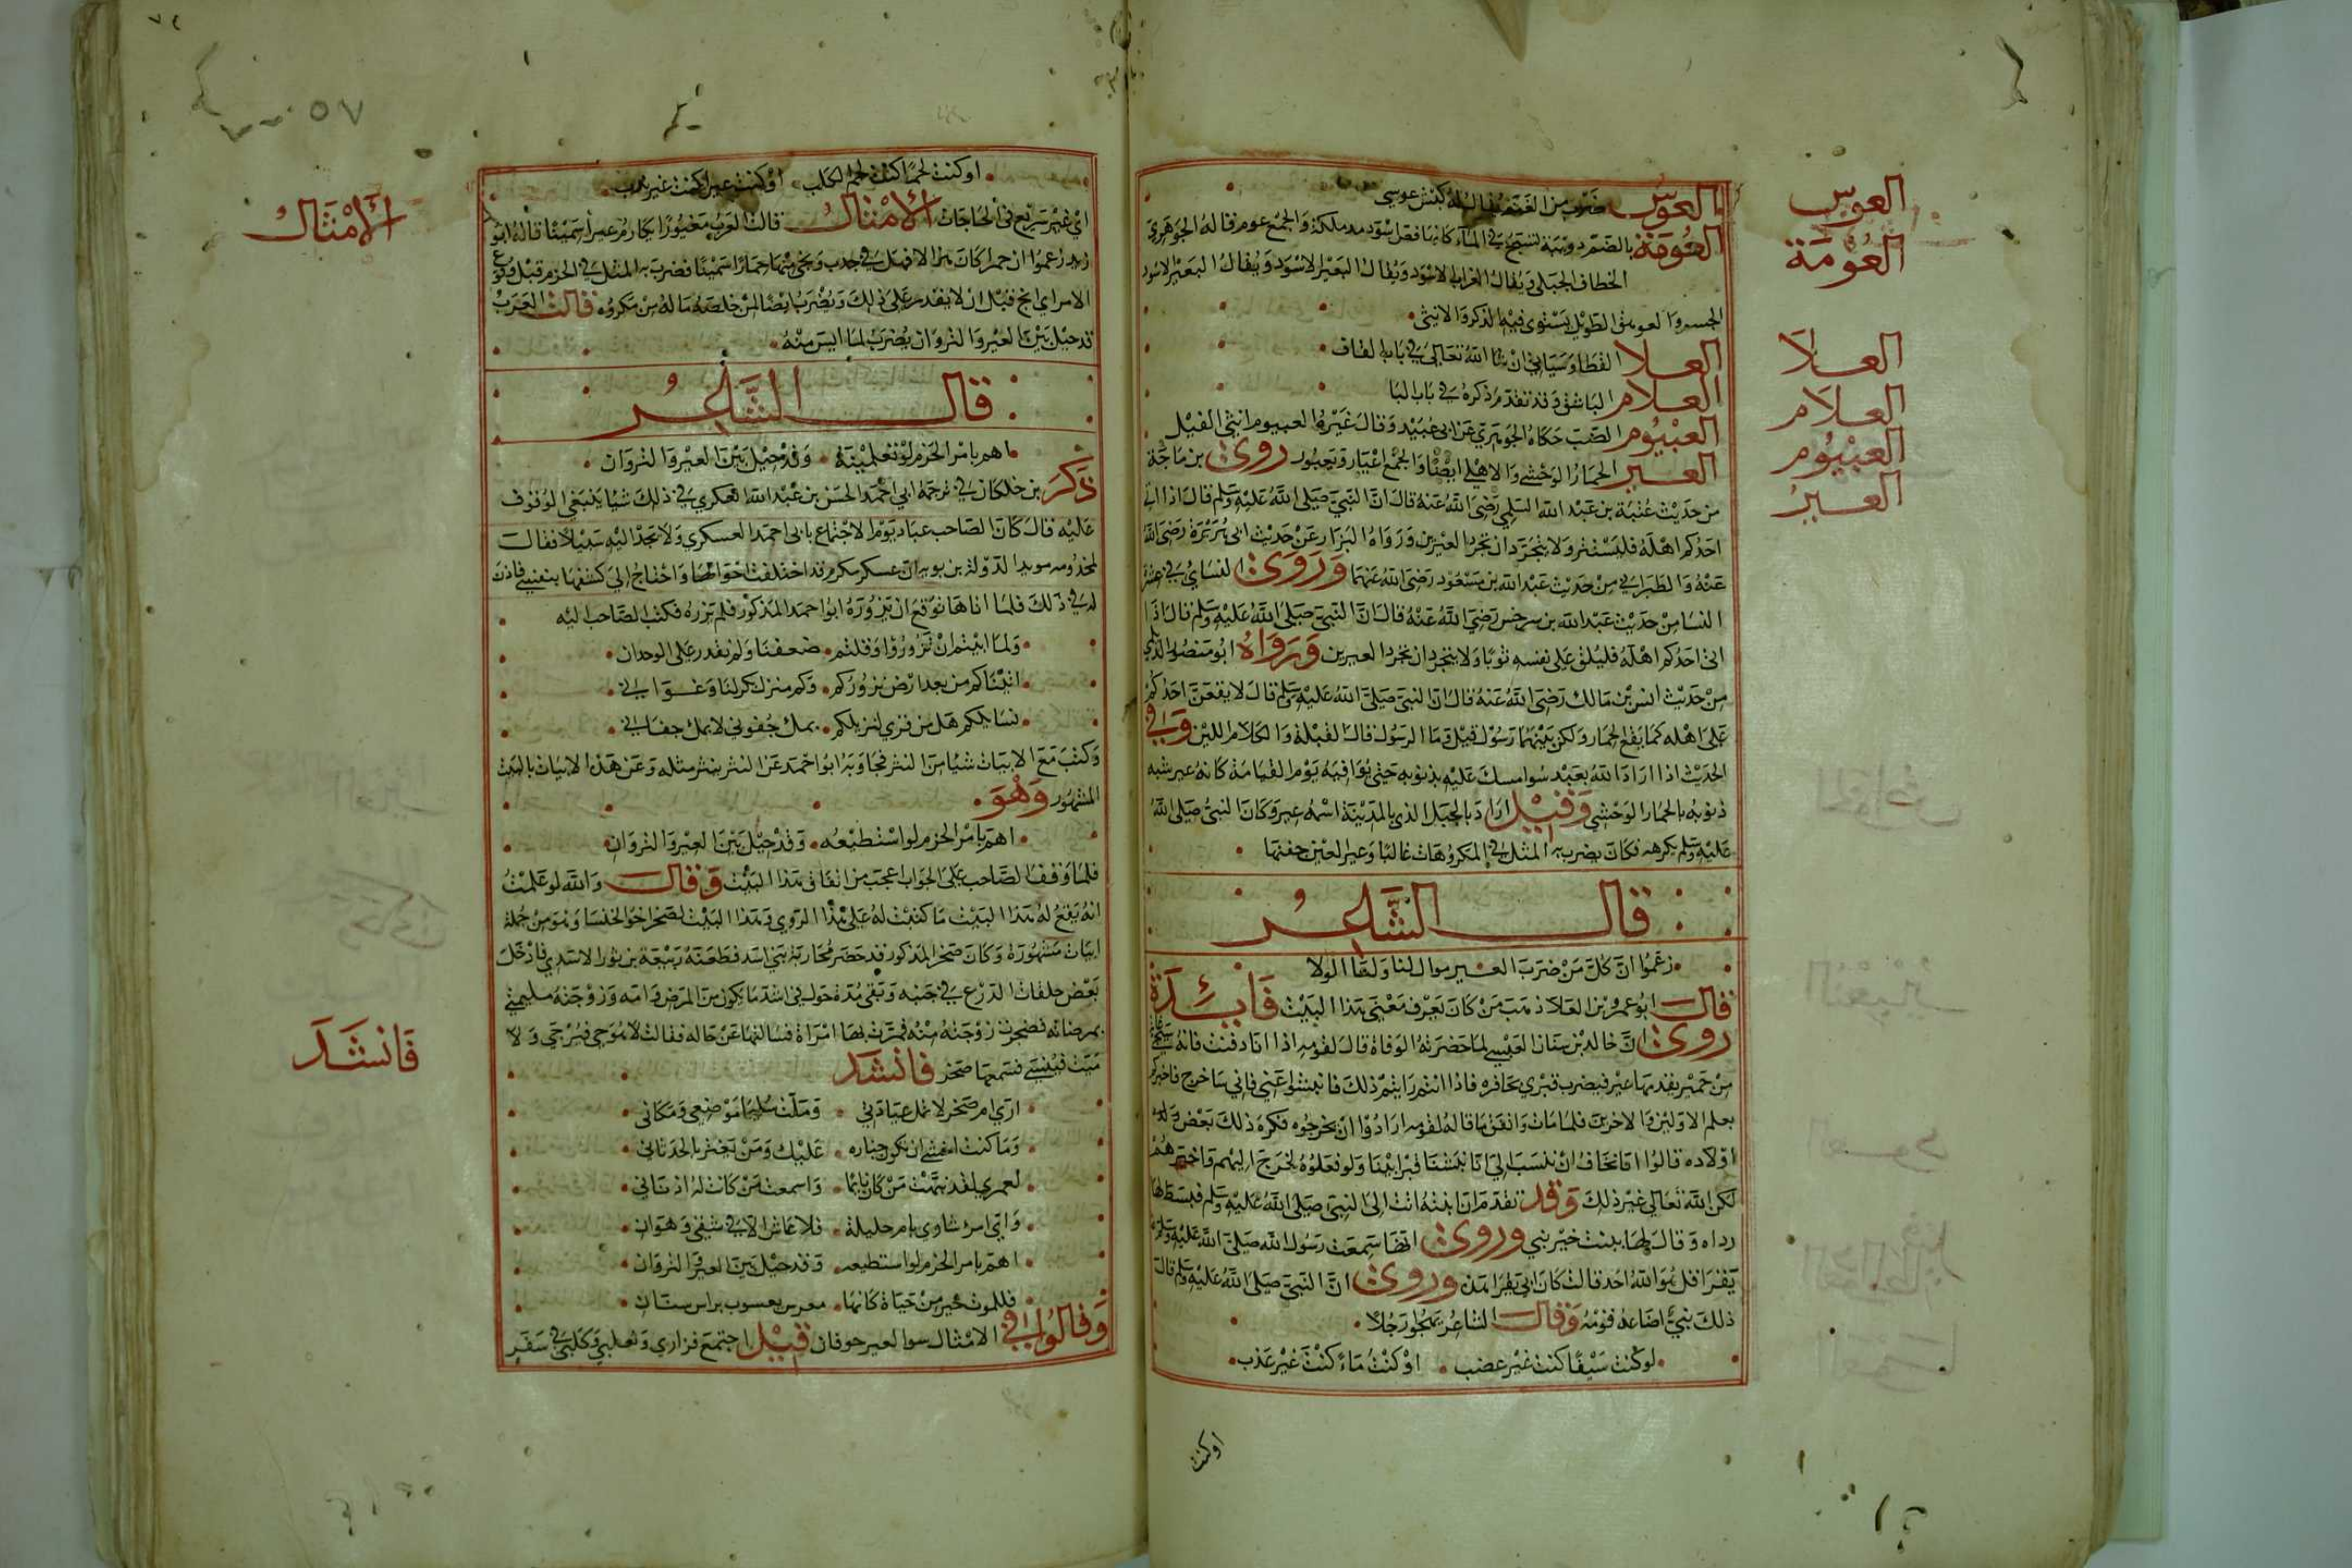 العوس ضرب من الغنم يقال له كبش عوسي
العومة بالضم دويبة تسبح في الماء كانها فص اسود مدملكة والجمع عوم قاله الجوهري
الخطاف الجبلي ويقال الغراب الاسود ويقال البعير الاسود ويقال البعير الاسود
الجسم والعوهق الطويل يستوى فيه الذكر والانثى
العلا القطا وسياتي ان شا الله تعالى في باب القاف
العلام الباشق وقد تقدم ذكره في باب البا
العيثوم الضبع حكاه الجوهري عن ابي عبيد وقال غيره العيثوم انثى الفيل
العير الحمار الوحشي والاهلي ايضا والجمع اعيار وعيور روى بن ماجة
من حديث عتبة بن عبد الله السلمي رضي الله عنه قال ان النبي صلى الله عليه وسلم قال اذا اتى
احدكم اهله فليستتر ولا يتجرد ان تجرد العيرين ورواه البزار عن حديث ابي هريرة رضي الله
عنه والطبراني من حديث عبد الله بن مسعود رضي الله عنهما وروى النساي في عشرة
النسا من حديث عبد الله بن سرخس رضي الله عنه قال ان النبي صلى الله عليه وسلم قال اذا
اتى احدكم اهله فليلق على نفسه ثوبا ولا يتجردان تجرد العيرين ورواه ابو منصور الديلمي
من حديث انس بن مالك رضي الله عنه قال ان النبي صلى الله عليه وسلم قال لا يقعن احدكم
على اهله كما يقع الحمار ولكن بينهما رسول قيل وما الرسول قال القبلة والكلام اللين وفي
الحديث اذا اراد الله بعبد سوا امسك عليه بذنوبه حتى يوافيه يوم القيامة كانه عير شبه
ذنوبه بالحمار الوحشي وقيل اراد بالجبل الذي بالمدينة اسمه عير وكان النبي صلى الله
عليه وسلم يكرهه فكان يضرب به المثل في المكروهات غالبا وعير العين جفنها
قال الشاعر
زعموا ان كل من ضرب العير موال لنا ولقا الولا
قال ابو عمرو بن العلا ذهب من كان يعرف معنى هذا البيت فايدة
روى ان خالد بن سنان العبسي لما حضرته الوفاة قال لقومه اذا انا دفنت فانه سيجئ
من حمير يقدمها عير فيضرب قبري بحافره فاذا انتم رايتم ذلك فانبشوا عني فاني ساخرج فاخبركم
بعلم الاولين والاخرين فلما مات واتفق ما قاله لقومه ارادوا ان يخرجوه فكره ذلك بعض
اولاده قالوا انا نخاف ان ننسب الى انا نبشنا قبر ابينا ولو فعلوه لخرج اليهم فاخبرهم
لكن الله تعالى غير ذلك وقد تقدم ان ابنته اتت الى النبي صلى الله عليه وسلم فبسط لها
رداه وقال لها بنت خير نبي وروى انها سمعت رسول الله صلى الله عليه وسلم
يقرا قل هو الله احد قالت كان ابي يقرا هذه وروى ان النبي صلى الله عليه وسلم قال
ذلك نبي اضاعه قومه وقال الشاعر يهجو رجلا
لو كنت سيفا كنت غير عضب او كنت ماء كنت غير عذب
او كنت
العوس
العومة
العلا
العلام
العيثوم
العير
٧٤
٥٧
او كنت لحما كنت لحم الكلب او كنت عيرا كنت غير ندب
اي غير سريع في الحاجات الامثال قالت العرب
زيد زعموا ان حمرا كانت هزالا فهلكت في جدب ونجى منها حمارا سمينا فضرب به المثل في الحزم قبل وقوع
الامر اي انج قبل ان لا يقدر على ذلك ويضرب ايضا لمن خلصه ماله من مكروه قالت العرب
قد حيل بين العير والنزوان يضرب لما ايس منه
قال الشاعر
اهم بامر الحزم لو تعلمينه وقد حيل بين العير والنزوان
ذكر بن خلكان في ترجمة ابي احمد الحسن بن عبد الله العسكري في ذلك شيا ينبغي الوقوف
عليه قال كان الصاحب عباد يود الاجتماع بابي احمد العسكري ولا يجد اليه سبيلا فقال
لمخدومه مويد الدولة بن بويه ان عسكر مكرم قد اختلفت احوالها واحتاج الى كشفها بنفسي فاذن
له في ذلك فلما اتاها توقع ان يزوره ابو احمد المذكور فلم يزره فكتب الصاحب اليه
ولما ابيتم ان تزوروا وقلتم ضعفنا ولم نقدر على الوحدان
اتيناكم من بعد ارض نزوركم وكم منزل بكر لنا وعواني
نسايلكم هل من قرى لنزيلكم بملئ جفوني لا بملئ جفاني
وكتب مع الابيات شيا من النثر فجاوبه ابو احمد عن النثر بنثر مثله وعن هذه الابيات بالبيت
المشهور وهو
اهم بامر الحزم لو استطيعه وقد حيل بين العير والنزوان
فلما وقف الصاحب على الجواب اعجب من اتفاق هذا البيت وقال والله لو علمت
انه يقع له هذا البيت ما كتبت له على هذا الروي وهذا البيت لصخر اخو الخنسا وهو من جملة
ابيات مشهورة وكان صخر المذكور قد حضر محاربة بني اسد فطعنه ربيعة بن ثور الاسدي فادخل
بعض حلقات الدرع في جنبه وبقي مدة حول في اشد ما يكون من المرض وامه وزوجته سليمى
يمرضانه فضجرت زوجته منه فمرت بها امراة فسالتها عن حاله فقالت لا هو حي فيرجى ولا
ميت فينسى فسمعها صخر فانشد
ارى ام صخر لا تمل عيادتي وملت سليمى موضعي ومكاني
وما كنت اخشى ان تكون جنازه عليك ومن يغتر بالحدثاني
لعمري لقد نبهت من كان نايما واسمعت من كانت له اذناني
واي امرء ساوى بام حليلة فلا عاش الا في شقى وهوان
اهم بامر الحزم لو استطيعه وقد حيل بين العير والنزوان
فللموت خير من حياة كانها معرس يعسوب براس سنان
وقالوا في الامثال سوا لعير جوفان قيل اجتمع فزاري وثعلبي وكلبي في سفر
الامثال
فانشد